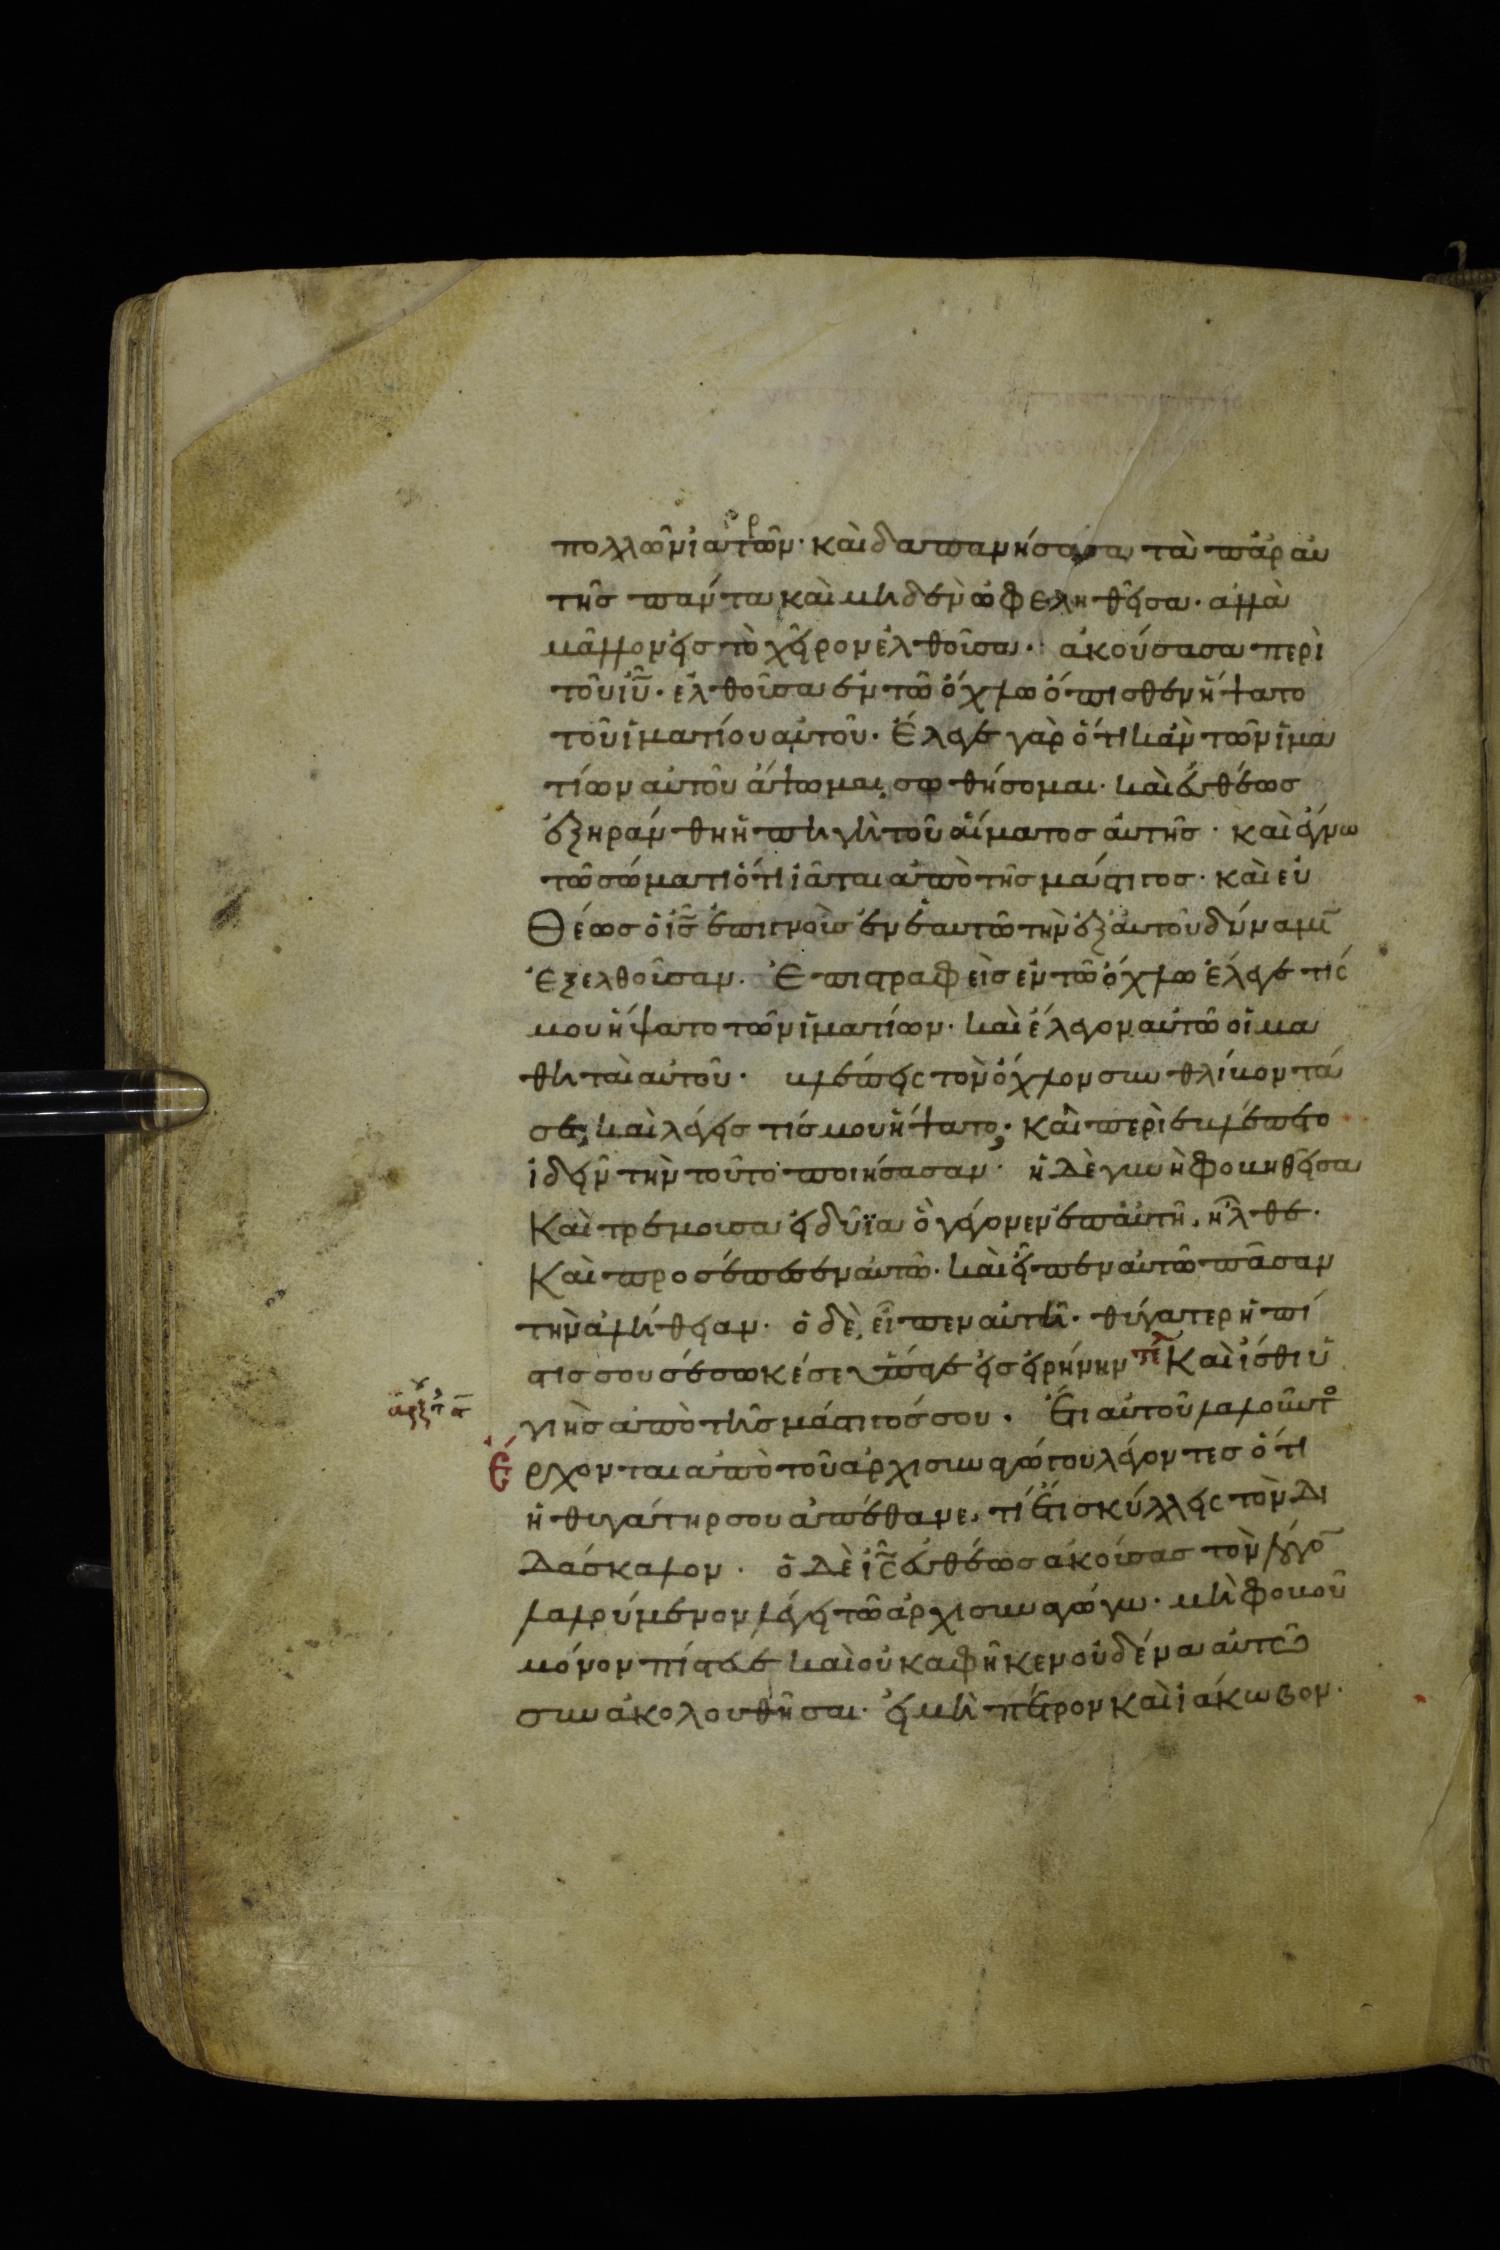 πολλῶν ἰατρῶν· καὶ δαπανήσασα τὰ παρ αυ
τῆς πάντα καὶ μηδὲν ὠφεληθεῖσα· αλλὰ
μᾶλλον εἰς τὸ χεῖρον ἐλθοῦσα· ἀκούσασα περὶ
τοῦ ιῦ· ἐλθοῦσα ἐν τῶ ὄχλω ὄπισθεν ἥψατο
τοῦ ἱματίου αὐτοῦ· Ἔλεγε γαρ ὅτι κὰν τῶν ἱμα
τίων αὐτοῦ ἅψωμαι, σωθήσομαι· καὶ εὐθέως
ἐξηράνθη ἡ πηγὴ τοῦ αἵματος αὐτῆς· καὶ ἔγνω
τῶ σώματι ὅτι ἰᾶται ἀπὸ τῆς μάστιγος· καὶ εὐ
Θέως ὁ ις ἐπιγνοὺς ἐν ἑαυτῶ τὴν ἐξ αυτοῦ δύναμι̅
Ἐξελθοῦσαν· Ἐπιστραφεὶς ἐν τῶ ὄχλω ἔλεγε τίς
μου ἥψατο τῶν ἱματίων· καὶ ἔλεγον αὐτῶ οἱ μα
θηταὶ αὐτοῦ· βλέπεις τὸν ὄχλον συνθλίβοντά
σε, καὶ λέγεις τίς μου ἥψατο; Καὶ περιεβλέπετο
ἰδεῖν τὴν τοῦτο ποιήσασαν· ἡ δὲ γυνὴ φοβηθεῖσα
Καὶ τρέμουσα εἰδυῖα ὃ γέγονεν ἐπ αὐτῆ, ἦλθε·
Καὶ προσέπεσεν αὐτῶ· καὶ εἶπεν αὐτῶ πᾶσαν
τὴν ἀλήθειαν· ὁ δὲ, εἶπεν αὐτῆ· θύγατερ ἡ πί
στις σου σέσωκέ σε ὕπαγε εἰς εἰρήνην τε Καὶ ἴσθι ὑ
γιὴς ἀπὸ τῆς μάστιγός σου· Ἔτι αὐτοῦ λαλοῦντο
Ἔρχονται ἀπὸ τοῦ ἀρχισυναγώγου λέγοντες ὅτι
ἡ θυγάτηρ σου ἀπέθανε, τί ἔτι σκύλλεις τὸν δι
Δάσκαλον· ὁ δὲ ις εὐθέως ἀκούσας τὸν λόγο̅
λαλούμενον λέγει τῶ ἀρχισυναγώγω· μὴ φοβοῦ
μόνον πίστευε καὶ οὐκ αφῆκεν οὐδένα αὐτῶ
συνακολουθῆσαι· εἰ μὴ πέτρον καὶ ἰάκωβον·